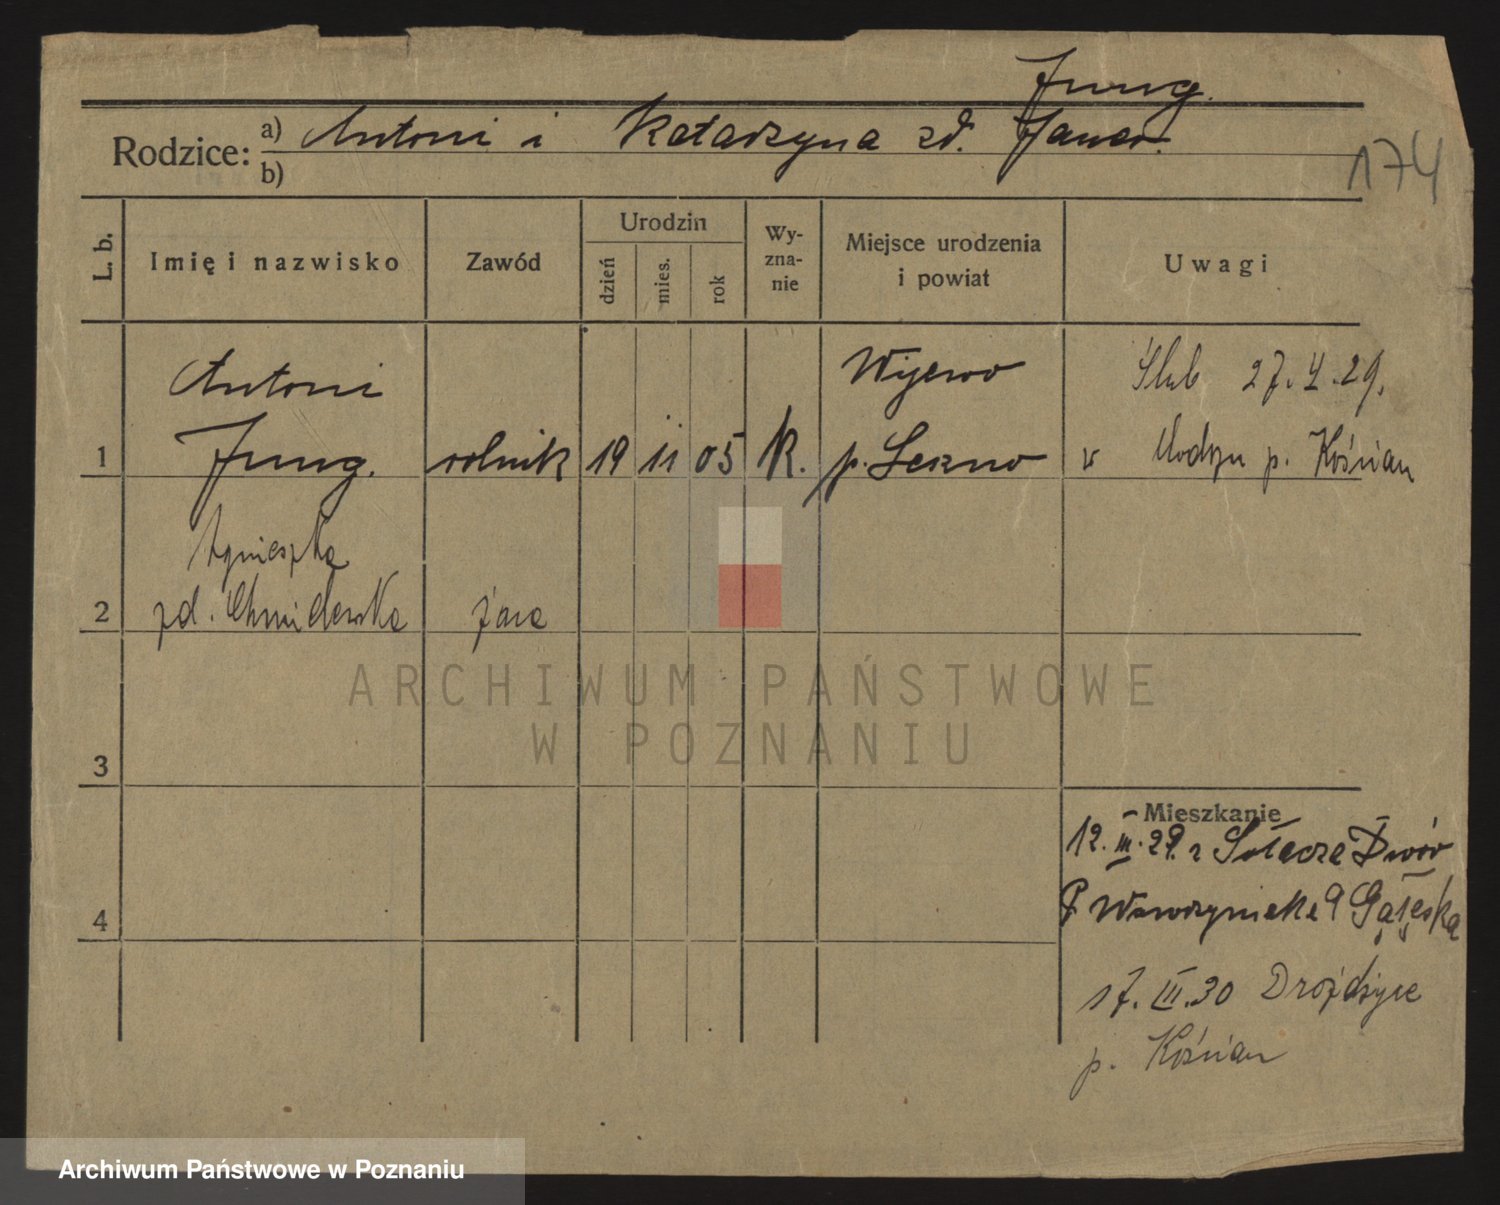 Jung.
Rodzice: a) Antoni i Katarzyna zd. Janer.
b)
174
L. b.
Imię i nazwisko
Zawód
Urodzin
dzień
mies.
rok
Wy-
zna-
nie
Miejsce urodzenia
i powiat
Uwagi
Antoni
Wijewo
Ślub 27.4.29.
1 Jung. rolnik 19 11 05 K. p. Leszno
v p. Kościan
Agnieszka
2 zd. żona
ARCHIWUM PAŃSTWOWE
W POZNANIU
3
Mieszkanie
12.III.29. z Sołacza Dwór
4
P Wawrzyniaka 9
17.III.30 Drożdżyce
p. Kościan
Archiwum Państwowe w Poznaniu